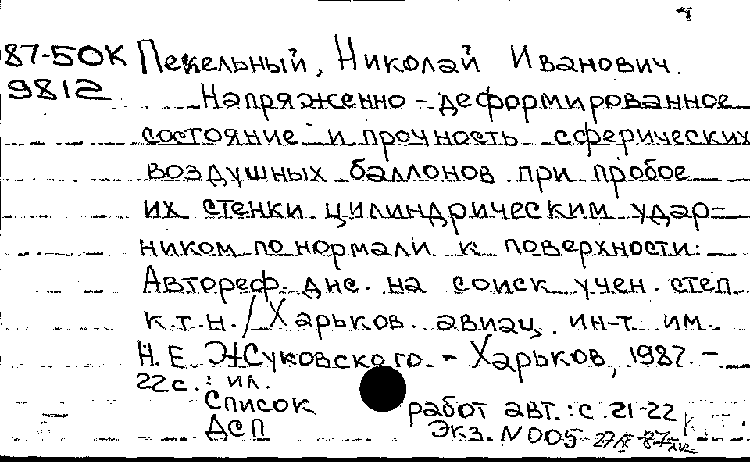 87-50К Пекельный, Николай Иванович.
9812 Напряженно-деформированное
состояние и прочность сферических
воздушных баллонов при пробое
их стенки цилиндрическим удар-
ником по нормали к поверхности:
Автореф. дис. на соиск учен. степ
к.т.н. / Харьков. авиац. ин-т им.
Н.Е. Жуковского. - Харьков, 1987. -
22 с. : ил.
Список работ авт.: с. 21-22
ДСП Экз. N 005